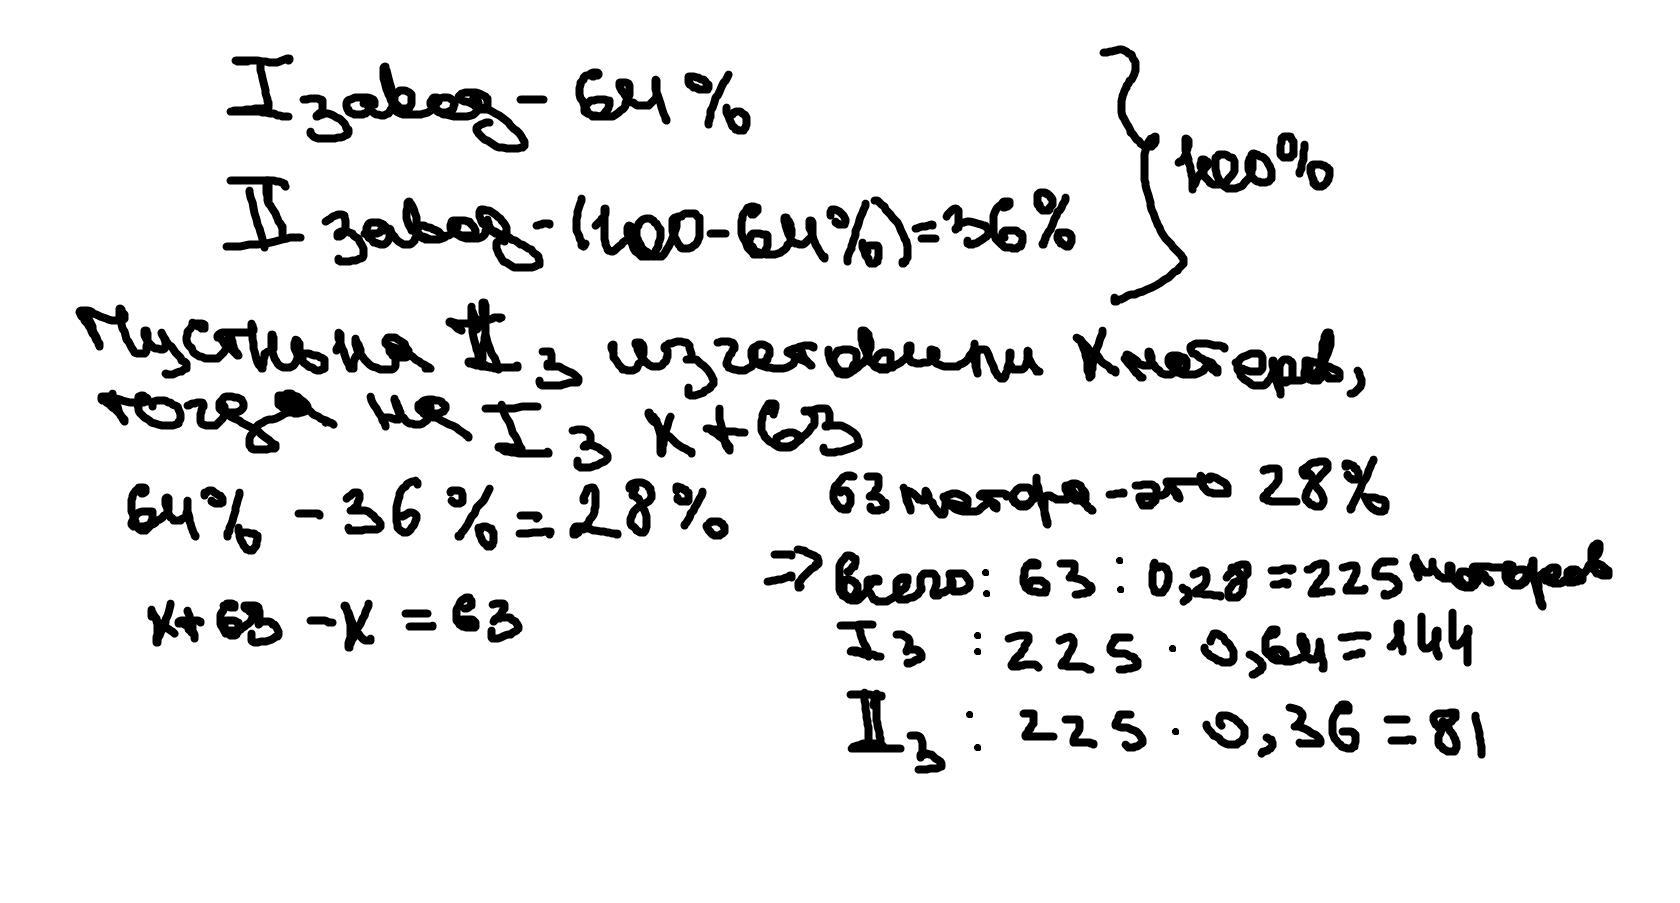 I завод - 64%
II завод - (100 - 64%) = 36%
} 100%
Пусть на II з изготовили х моторов,
тогда на I з х + 63
64% - 36% = 28%
х + 63 - х = 63
63 мотора - это 28%
⇒ всего: 63 : 0,28 = 225 моторов
I з : 225 · 0,64 = 144
II з : 225 · 0,36 = 81